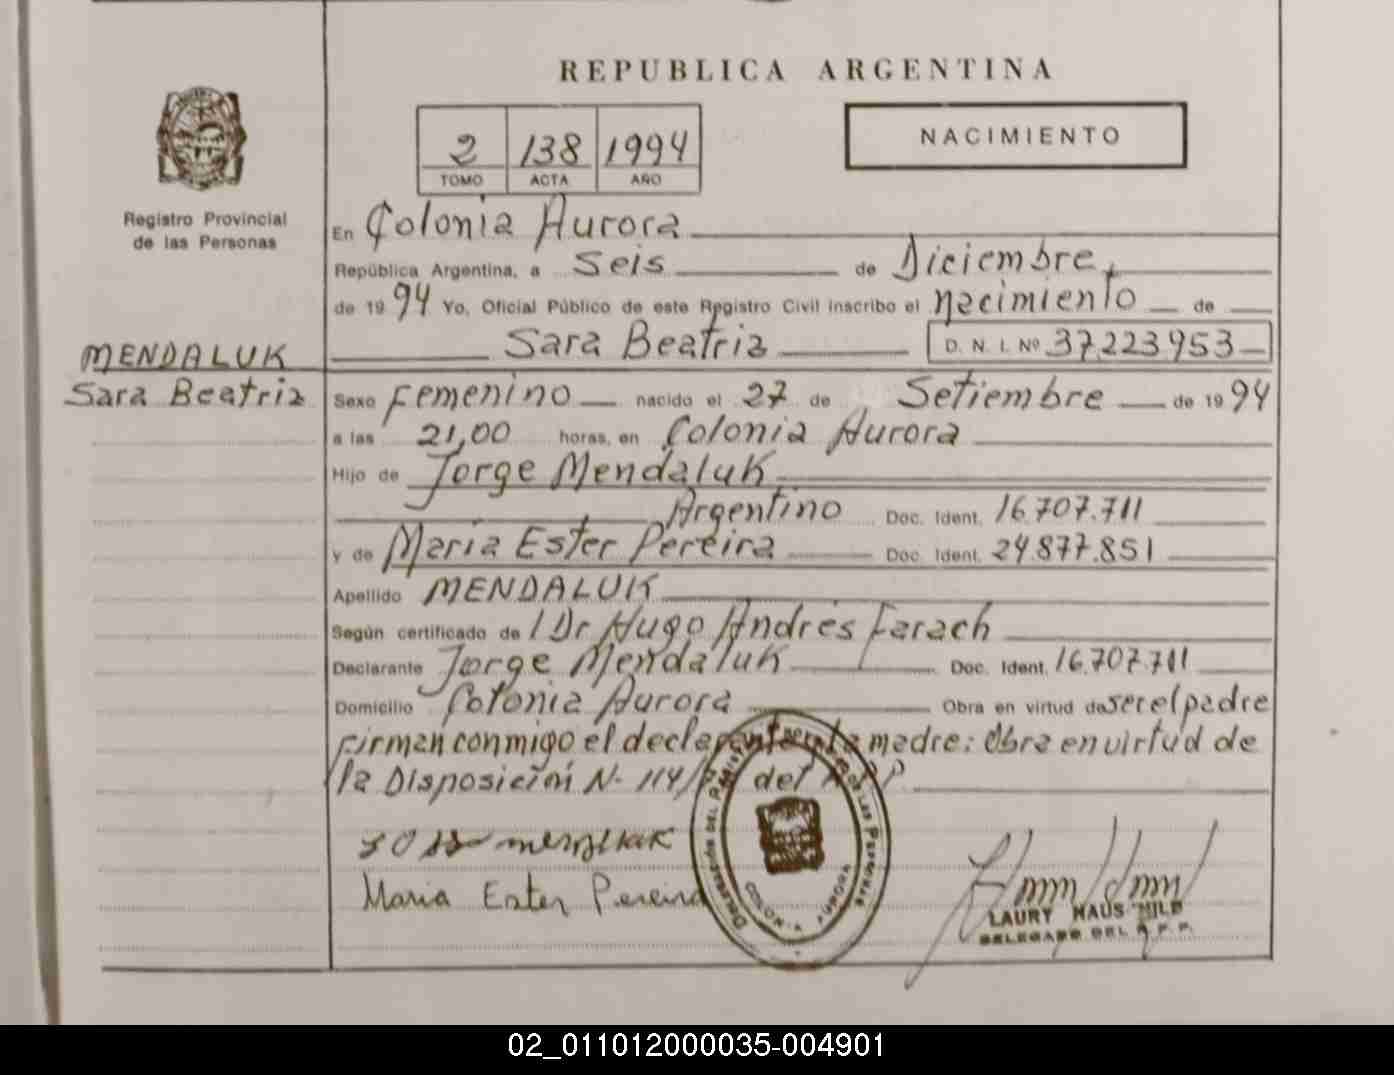 REPUBLICA ARGENTINA
NACIMIENTO
2 138 1994
TOMO ACTA AÑO
Registro Provincial
de las Personas
En Colonia Aurora
República Argentina, a Seis de Diciembre,
de 19 94 Yo, Oficial Público de este Registro Civil inscribo el nacimiento de
Sara Beatriz D. N. I. Nº 37.223.953
MENDALUK
Sara Beatriz
Sexo Femenino nacido el 27 de Setiembre de 19 94
a las 21,00 horas, en Colonia Aurora
Hijo de Jorge Mendaluk
Argentino Doc. Ident. 16.707.711
y de Maria Ester Pereira Doc. Ident. 24.877.851
Apellido MENDALUK
Según certificado de l Dr Hugo Andrés Farach
Declarante Jorge Mendaluk Doc. Ident. 16.707.711
Domicilio Colonia Aurora Obra en virtud de ser el padre
Firman conmigo el declarante y la madre: Obra en virtud de
la Disposición N- 114/ del
Maria Ester Pereira
COLONIA AURORA
LAURY HAUS HILD
DELEGADO DEL R.P.P.
02_011012000035-004901